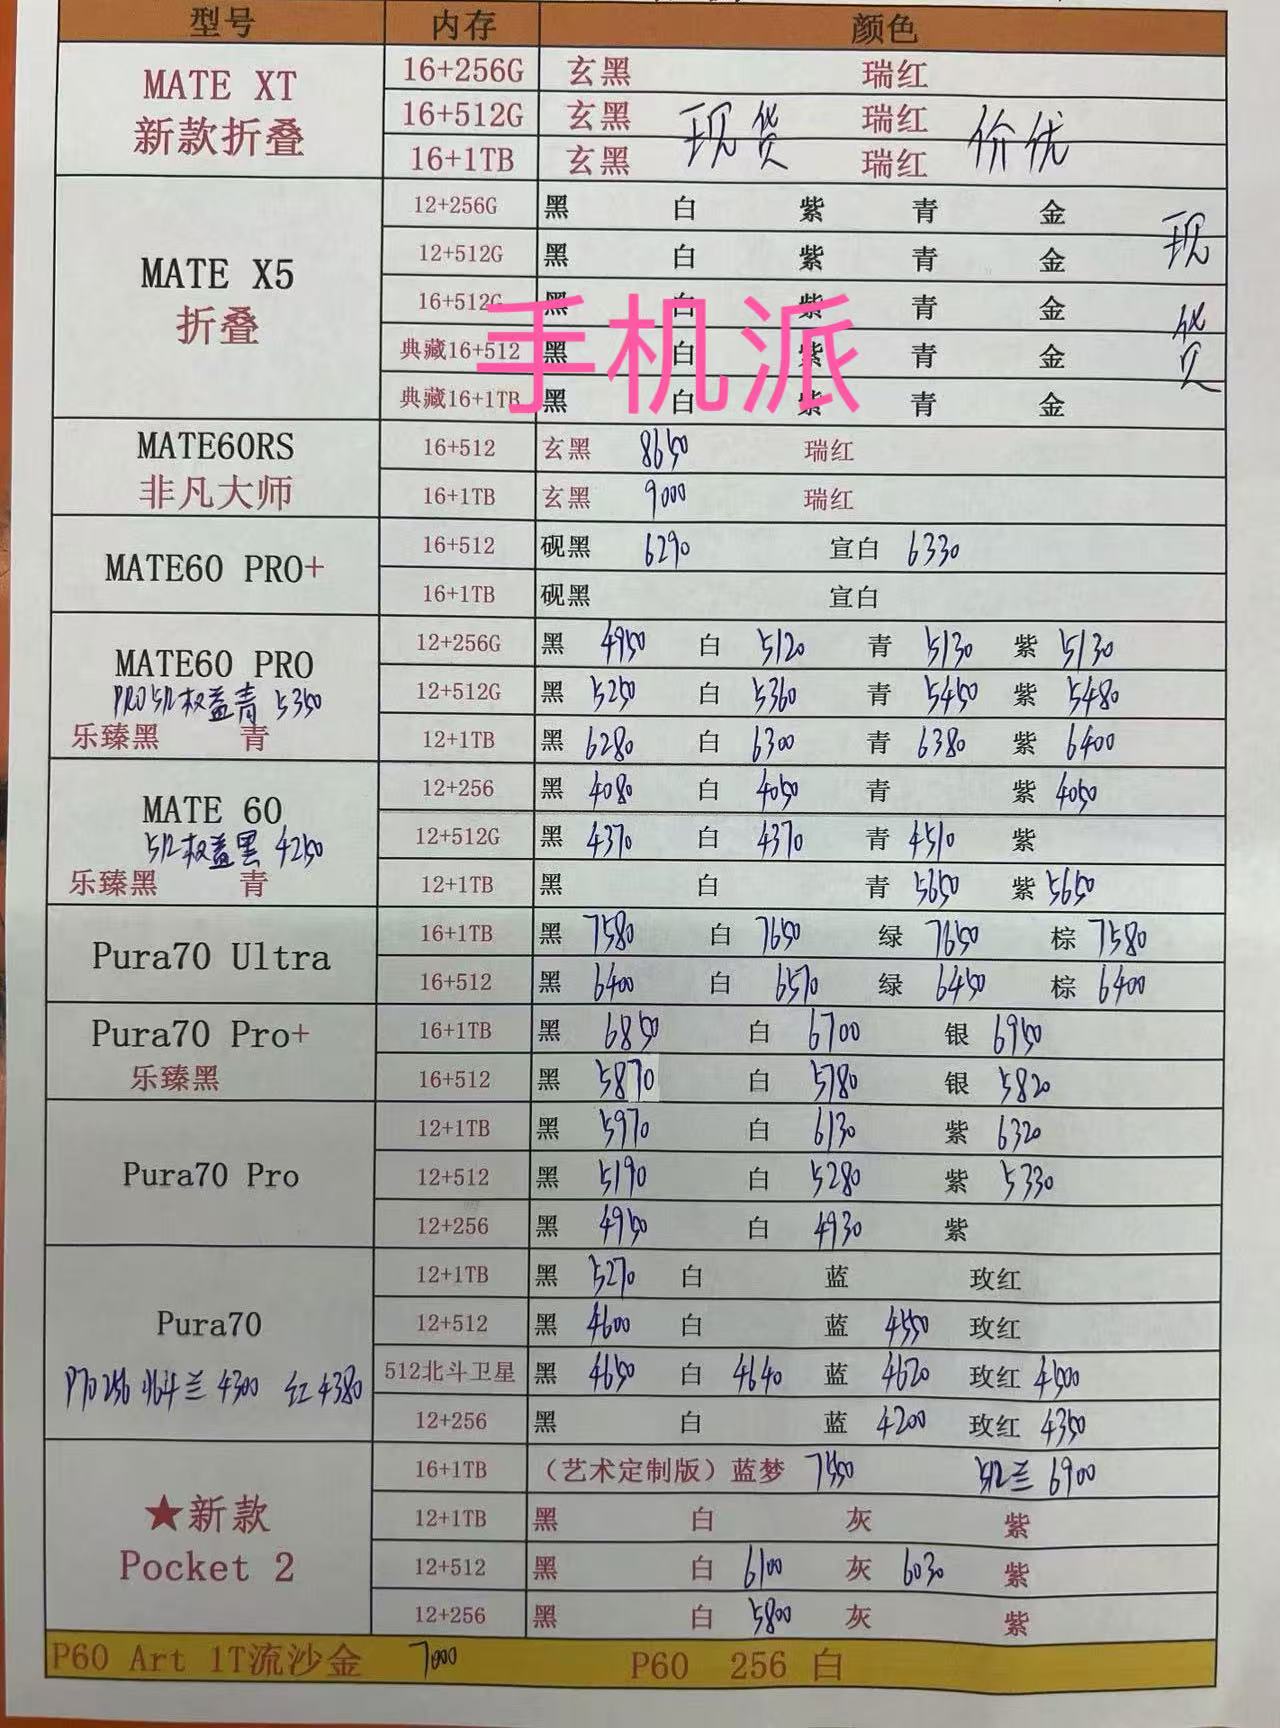 型号 内存 颜色
MATE XT
新款折叠
16+256G 玄黑 瑞红
16+512G 玄黑 瑞红
现货 价优
16+1TB 玄黑 瑞红
MATE X5
折叠
12+256G 黑 白 紫 青 金
现货
12+512G 黑 白 紫 青 金
16+512G 黑 白 紫 青 金
手机派
典藏16+512 黑 白 紫 青 金
典藏16+1TB 黑 白 紫 青 金
MATE60RS
非凡大师
16+512 玄黑 8650 瑞红
16+1TB 玄黑 9000 瑞红
MATE60 PRO+
16+512 砚黑 6290 宣白 6330
16+1TB 砚黑 宣白
MATE60 PRO
PRO 512权益青 5350
乐臻黑 青
12+256G 黑 4950 白 5120 青 5130 紫 5130
12+512G 黑 5250 白 5360 青 5450 紫 5480
12+1TB 黑 6280 白 6300 青 6380 紫 6400
MATE 60
512权益黑 4250
乐臻黑 青
12+256 黑 4080 白 4050 青 紫 4050
12+512G 黑 4370 白 4370 青 4510 紫
12+1TB 黑 白 青 5650 紫 5650
Pura70 Ultra
16+1TB 黑 7580 白 7650 绿 7650 棕 7580
16+512 黑 6400 白 6570 绿 6450 棕 6400
Pura70 Pro+
乐臻黑
16+1TB 黑 6850 白 6700 银 6950
16+512 黑 5870 白 5780 银 5820
Pura70 Pro
12+1TB 黑 5970 白 6130 紫 6320
12+512 黑 5190 白 5280 紫 5330
12+256 黑 4950 白 4930 紫
Pura70
P70 256 北斗兰 4300 红 4380
12+1TB 黑 5270 白 蓝 玫红
12+512 黑 4600 白 蓝 4550 玫红
512北斗卫星 黑 4650 白 4640 蓝 4620 玫红 4500
12+256 黑 白 蓝 4200 玫红 4350
★新款
Pocket 2
16+1TB （艺术定制版）蓝梦 7550 512兰 6900
12+1TB 黑 白 灰 紫
12+512 黑 白 6100 灰 6030 紫
12+256 黑 白 5800 灰 紫
P60 Art 1T流沙金 7000 P60 256 白